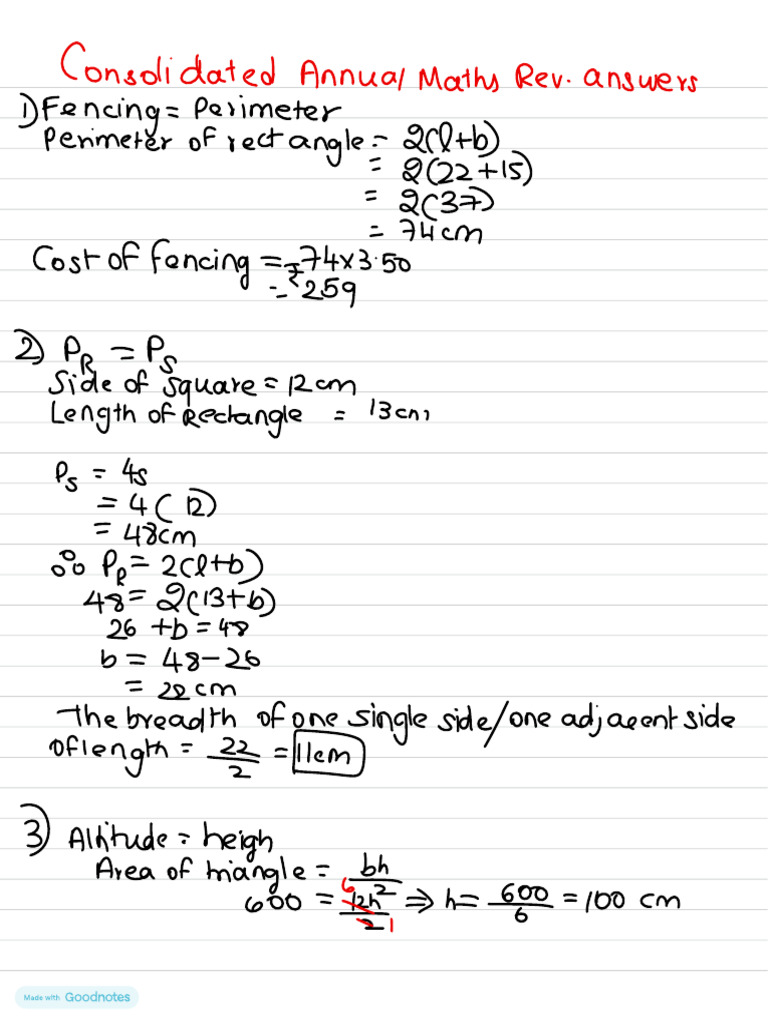 Consolidated Annual Maths Rev. answers
1) Fencing = Perimeter
Perimeter of rectangle = 2(l+b)
= 2(22+15)
= 2(37)
= 74cm
Cost of fencing = 74×3.50
= ₹259
2) P_R = P_S
Side of square = 12cm
Length of Rectangle = 13cm
P_S = 4s
= 4(12)
= 48cm
∴ P_R = 2(l+b)
48 = 2(13+b)
26 + b = 48
b = 48-26
= 22cm
The breadth of one single side/one adjacent side
of length = 22/2 = 11cm
3) Altitude = heigh
Area of triangle = bh/2
600 = 12h/2 6 1 ⇒ h = 600/6 = 100 cm
Made with Goodnotes